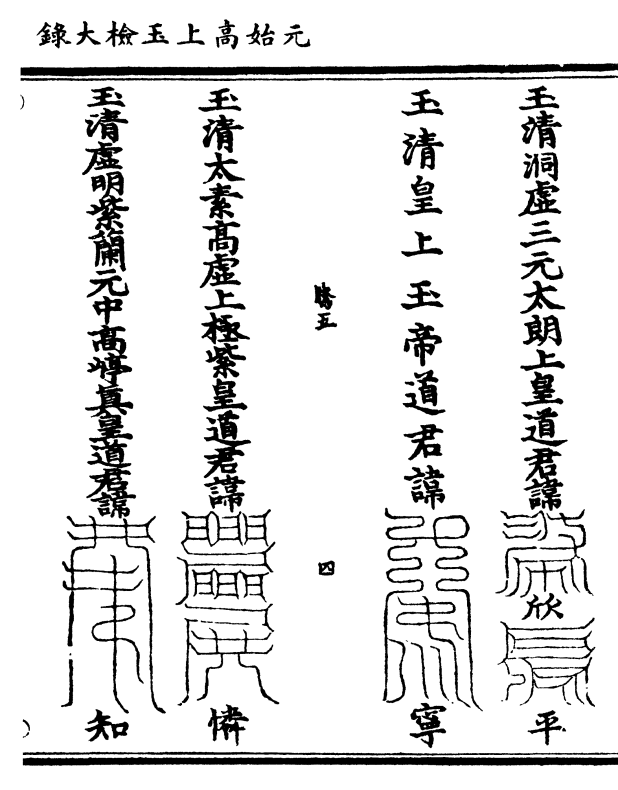 元始高上玉檢大錄
玉清洞虛三元太朗上皇道君諱
欣
平
玉清皇上玉帝道君諱
寧
騰五
四
玉清太素高虛上極紫皇道君諱
憐
玉清虛明紫蘭元中高㟷真皇道君諱
知